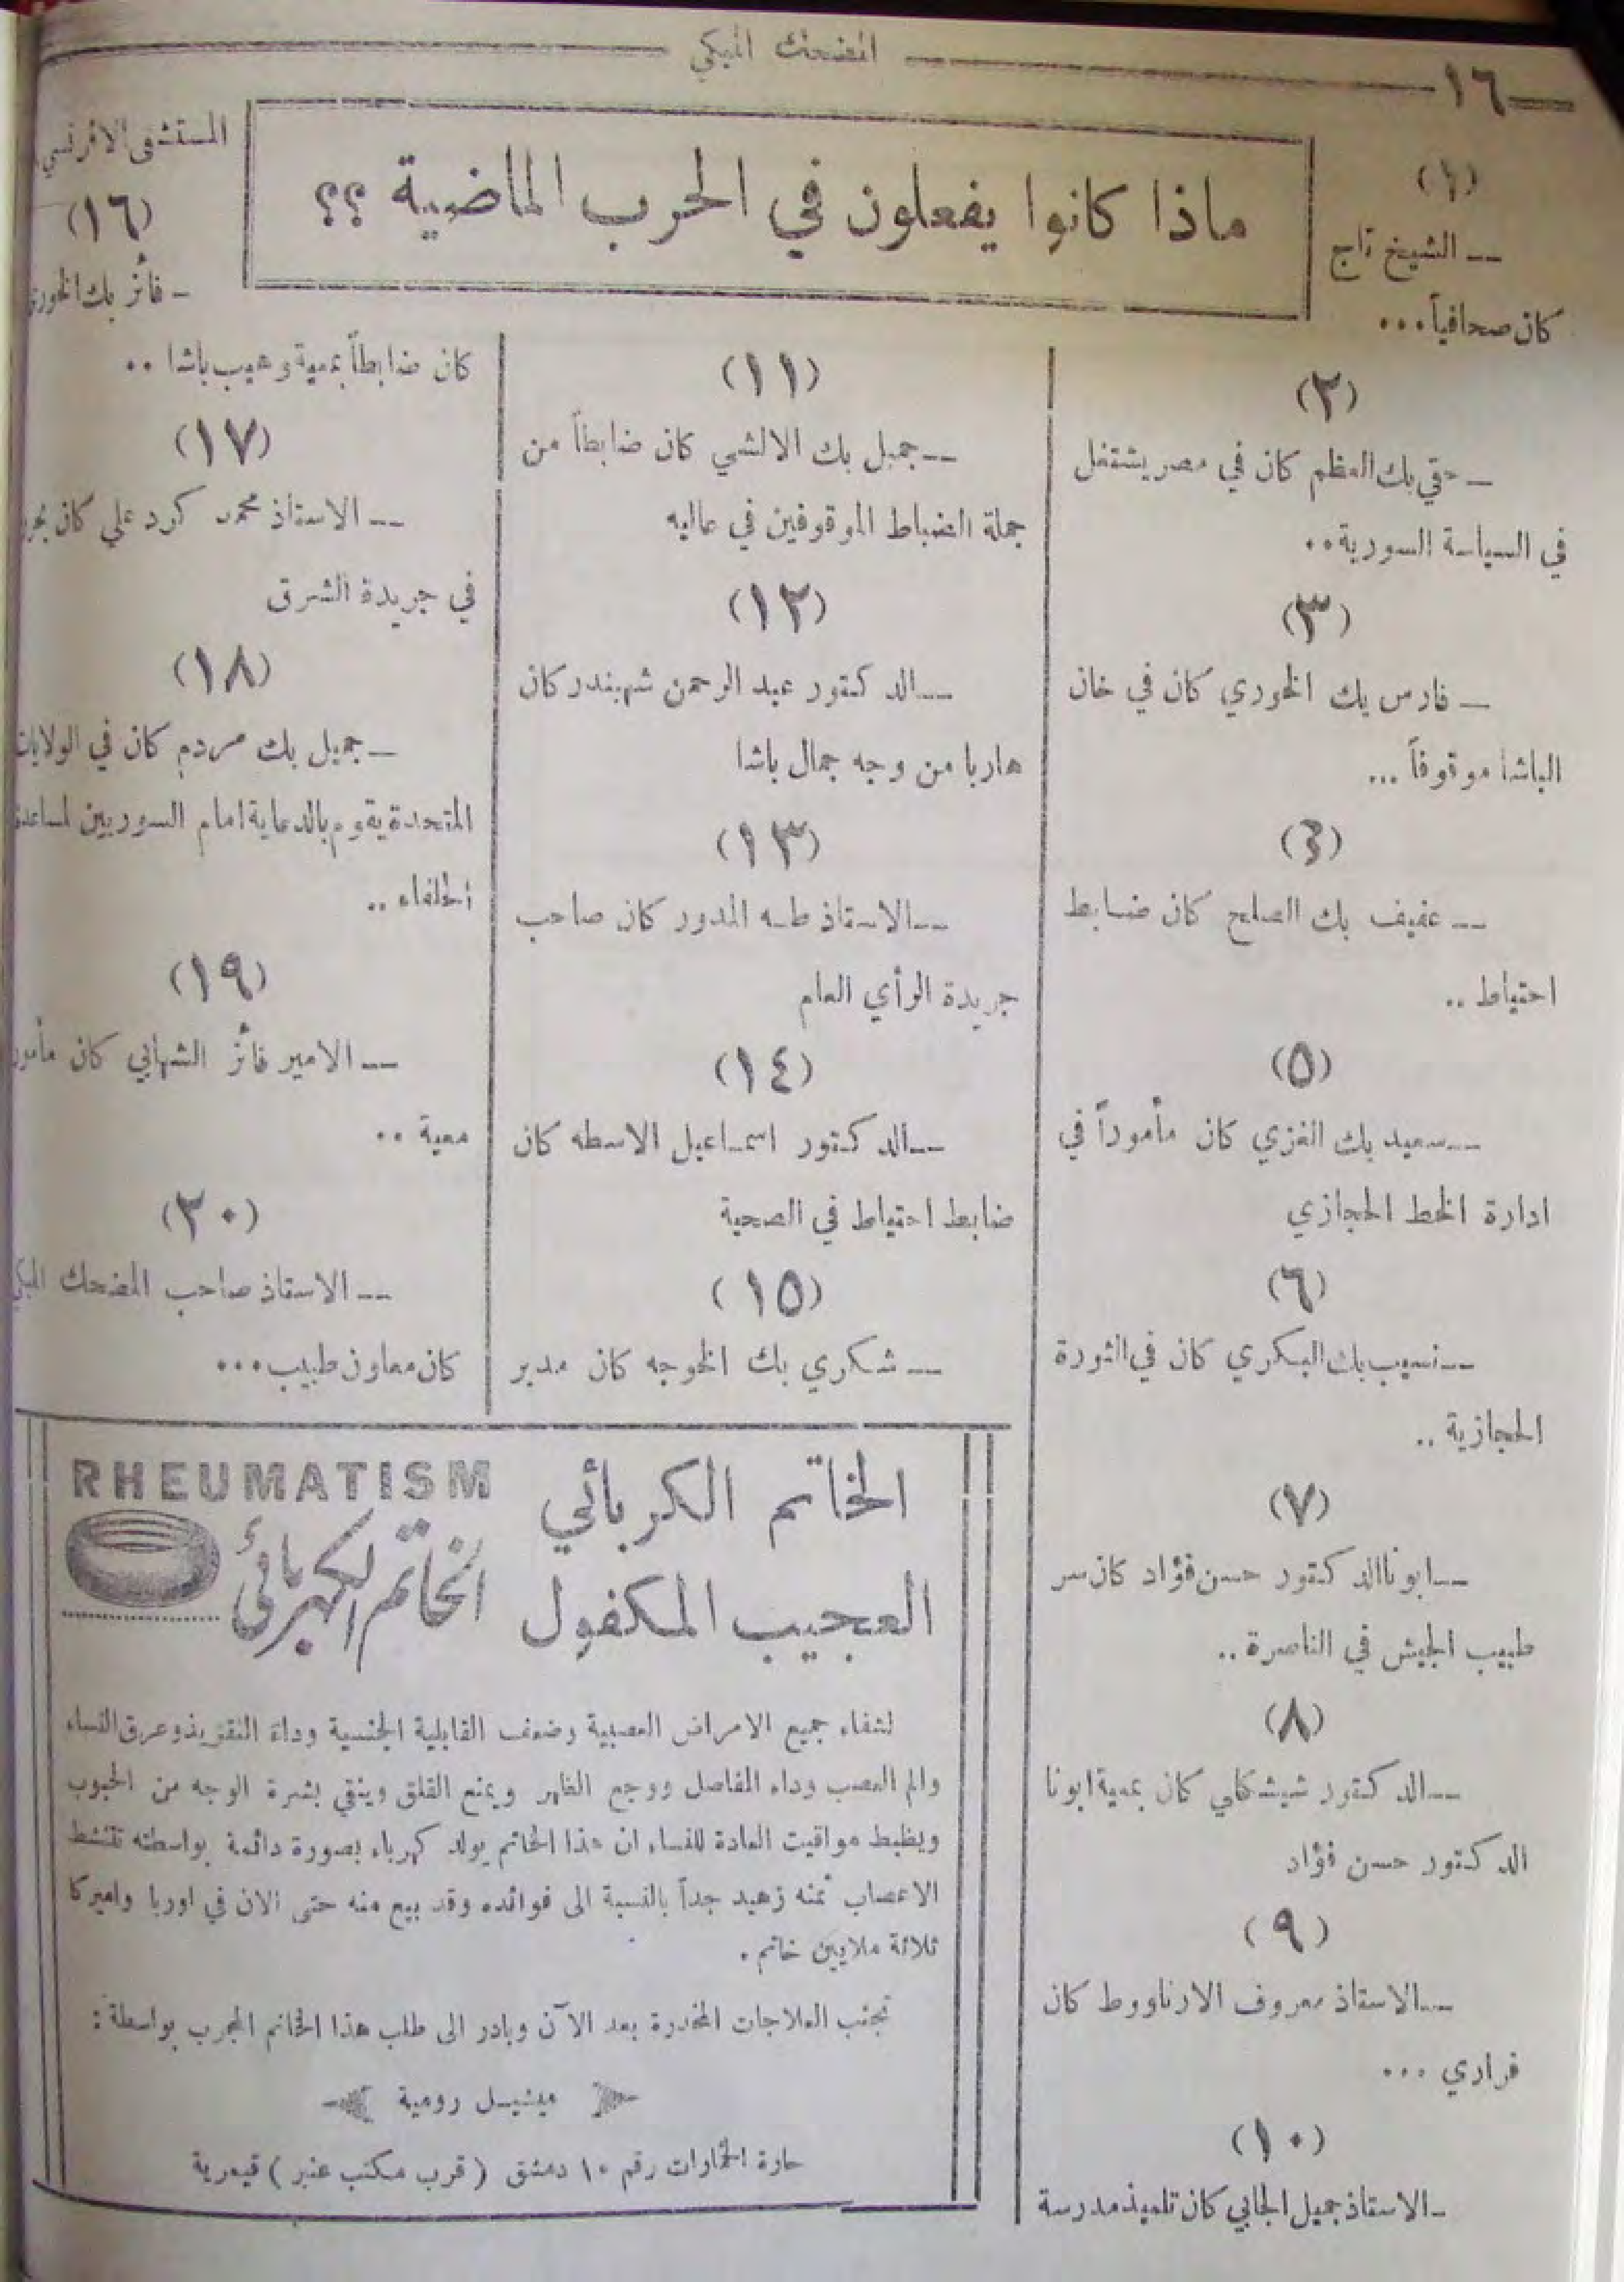 ١٦
المضحك المبكي
ماذا كانوا يفعلون في الحرب الماضية ؟؟
(١)
ــ الشيخ تاج
كان صحافياً...
(٢)
ــ حقي بك العظم كان في مصر يشتغل
في السياسة السورية..
(٣)
ــ فارس بك الخوري كان في خان
الباشا موقوفاً ...
(٤)
ــ عفيف بك الصلح كان ضابط
احتياط ..
(٥)
ــ سعيد بك الغزي كان مأموراً في
ادارة الخط الحجازي
(٦)
ــ نسيب بك البكري كان في الثورة
الحجازية ..
(٧)
ــ ابونا الدكتور حسن فؤاد كان سر
طبيب الجيش في الناصرة ..
(٨)
ــ الدكتور شيشكلي كان بمعية ابونا
الدكتور حسن فؤاد
(٩)
ــ الاستاذ معروف الارناووط كان
فراري ...
(١٠)
ــ الاستاذ جميل الجابي كان تلميذ مدرسة
(١١)
ــ جميل بك الالشي كان ضابطاً من
جملة الضباط الموقوفين في عاليه
(١٢)
ــ الدكتور عبد الرحمن شهبندر كان
هاربا من وجه جمال باشا
(١٣)
ــ الاستاذ طه المدور كان صاحب
جريدة الرأي العام
(١٤)
ــ الدكتور اسماعيل الاسطه كان
ضابط احتياط في الصحية
(١٥)
ــ شكري بك الخوجه كان مدير
المستشفى الافرنسي
(١٦)
ــ فائز بك الخوري
كان ضابطاً بمعية وهيب باشا ..
(١٧)
ــ الاستاذ محمد كرد علي كان
في جريدة الشرق
(١٨)
ــ جميل بك مردم كان في الولايات
المتحدة يقوم بالدعاية امام السوريين لمساعدة
الحلفاء ..
(١٩)
ــ الامير فائز الشهابي كان مأمور
معية ..
(٢٠)
ــ الاستاذ صاحب المضحك المبكي
كان معاون طبيب...
الخاتم الكربائي
العجيب المكفول
RHEUMATISM
الخاتم الكهربائي
لشفاء جميع الامراض العصبية وضعف القابلية الجنسية وداء النقريذ وعرق النساء
والم العصب وداء المفاصل ووجع الظهر ويمنع القلق وينقي بشرة الوجه من الحبوب
ويظبط مواقيت العادة للنساء ان هذا الخاتم يولد كهرباء بصورة دائمة بواسطته تتنشط
الاعصاب ثمنه زهيد جداً بالنسبة الى فوائده وقد بيع منه حتى الان في اوربا واميركا
ثلاثة ملايين خاتم .
تجنب العلاجات المخدرة بعد الآن وبادر الى طلب هذا الخاتم المجرب بواسطة :
ميشيل رومية
حارة الخمارات رقم ١٠ دمشق ( قرب مكتب عنبر ) قيمرية